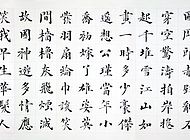 穿空驚濤拍岸捲
起千堆雪江山如
畫一時多少豪傑
遙想公瑾當年小
喬初嫁了雄姿英
發羽扇綸巾談笑
間檣櫓灰飛煙滅
故國神遊多情應
笑我早生華髮人